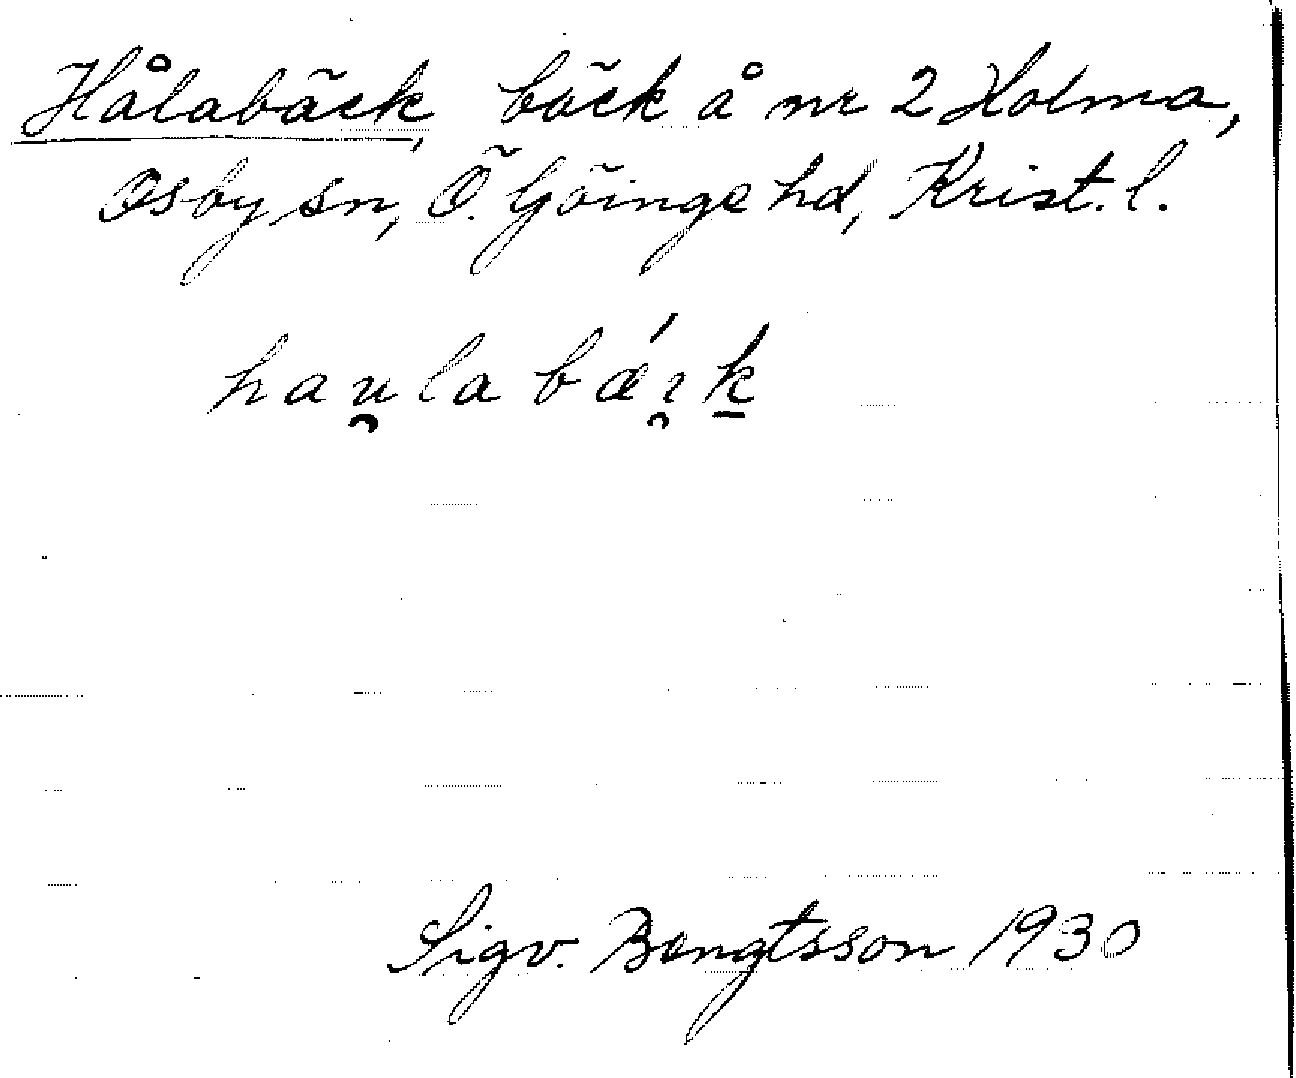 Hålabäck, bäck å nr 2 Holma,
Osby sn, Ö. Göinge hd, Krist. l.
hau̯labǽı̯k̠
Sigv. Bengtsson 1930